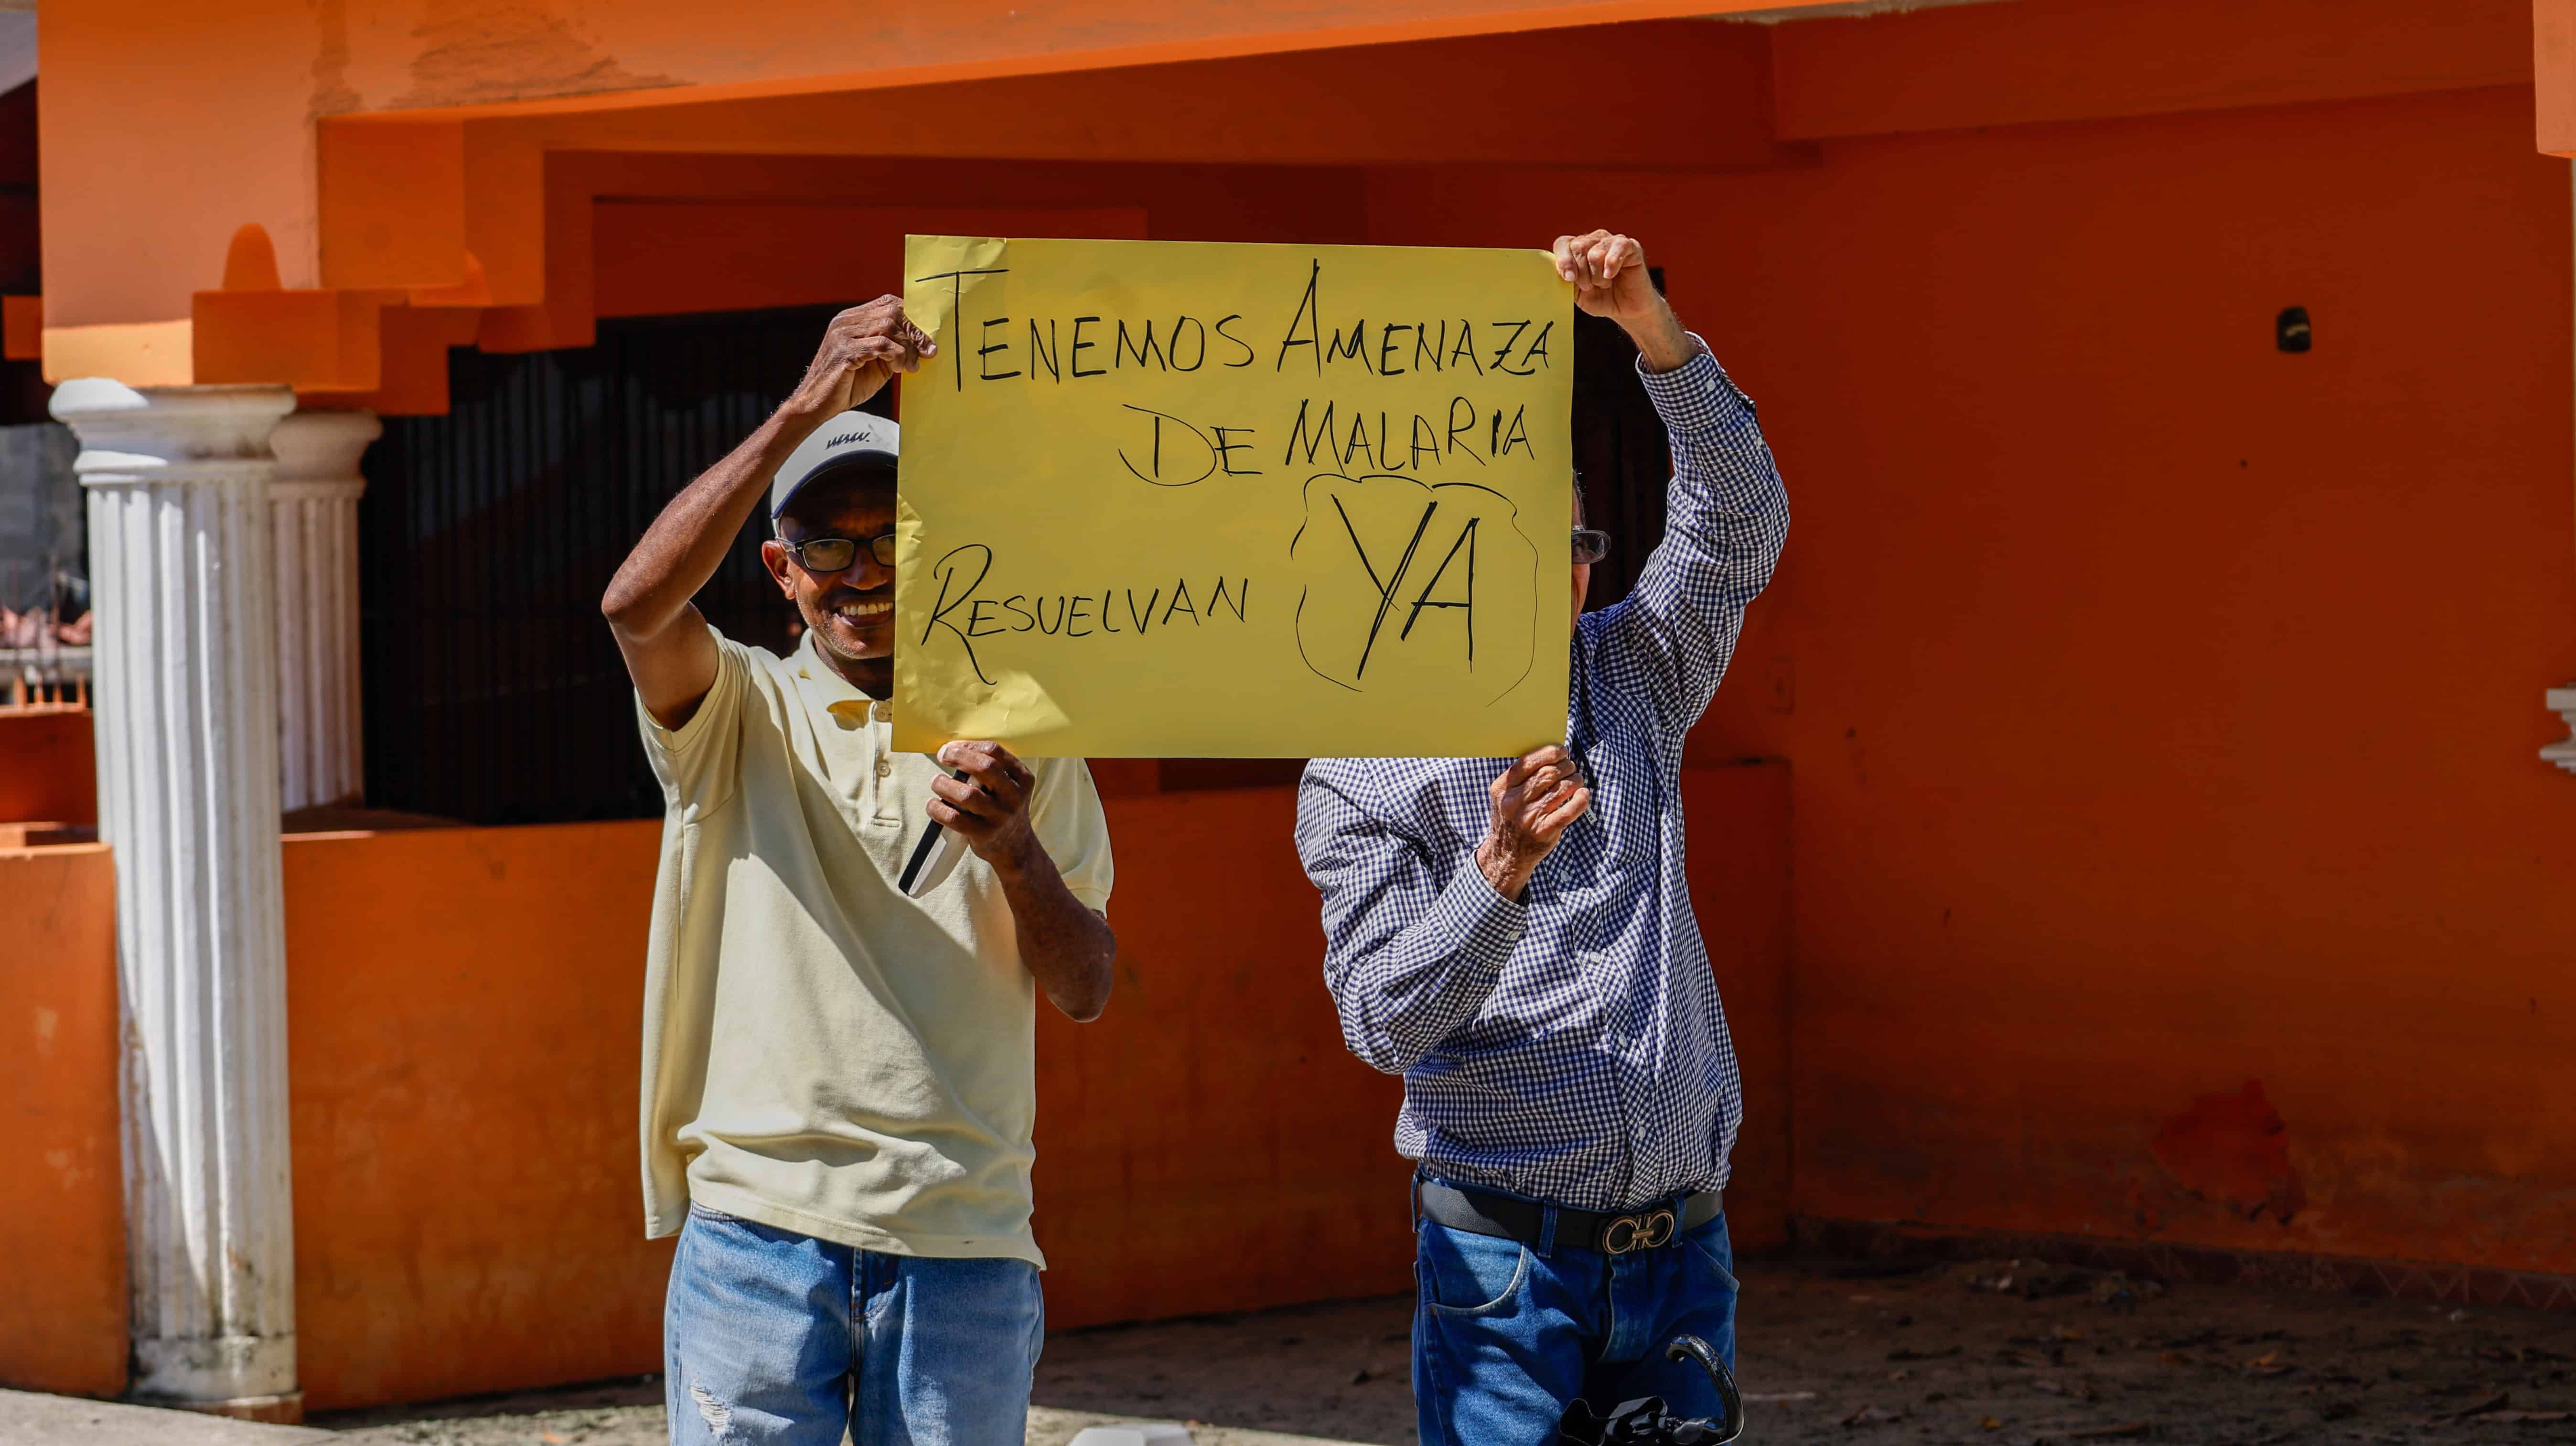 TENEMOS AMENAZA
DE MALARIA
RESUELVAN YA